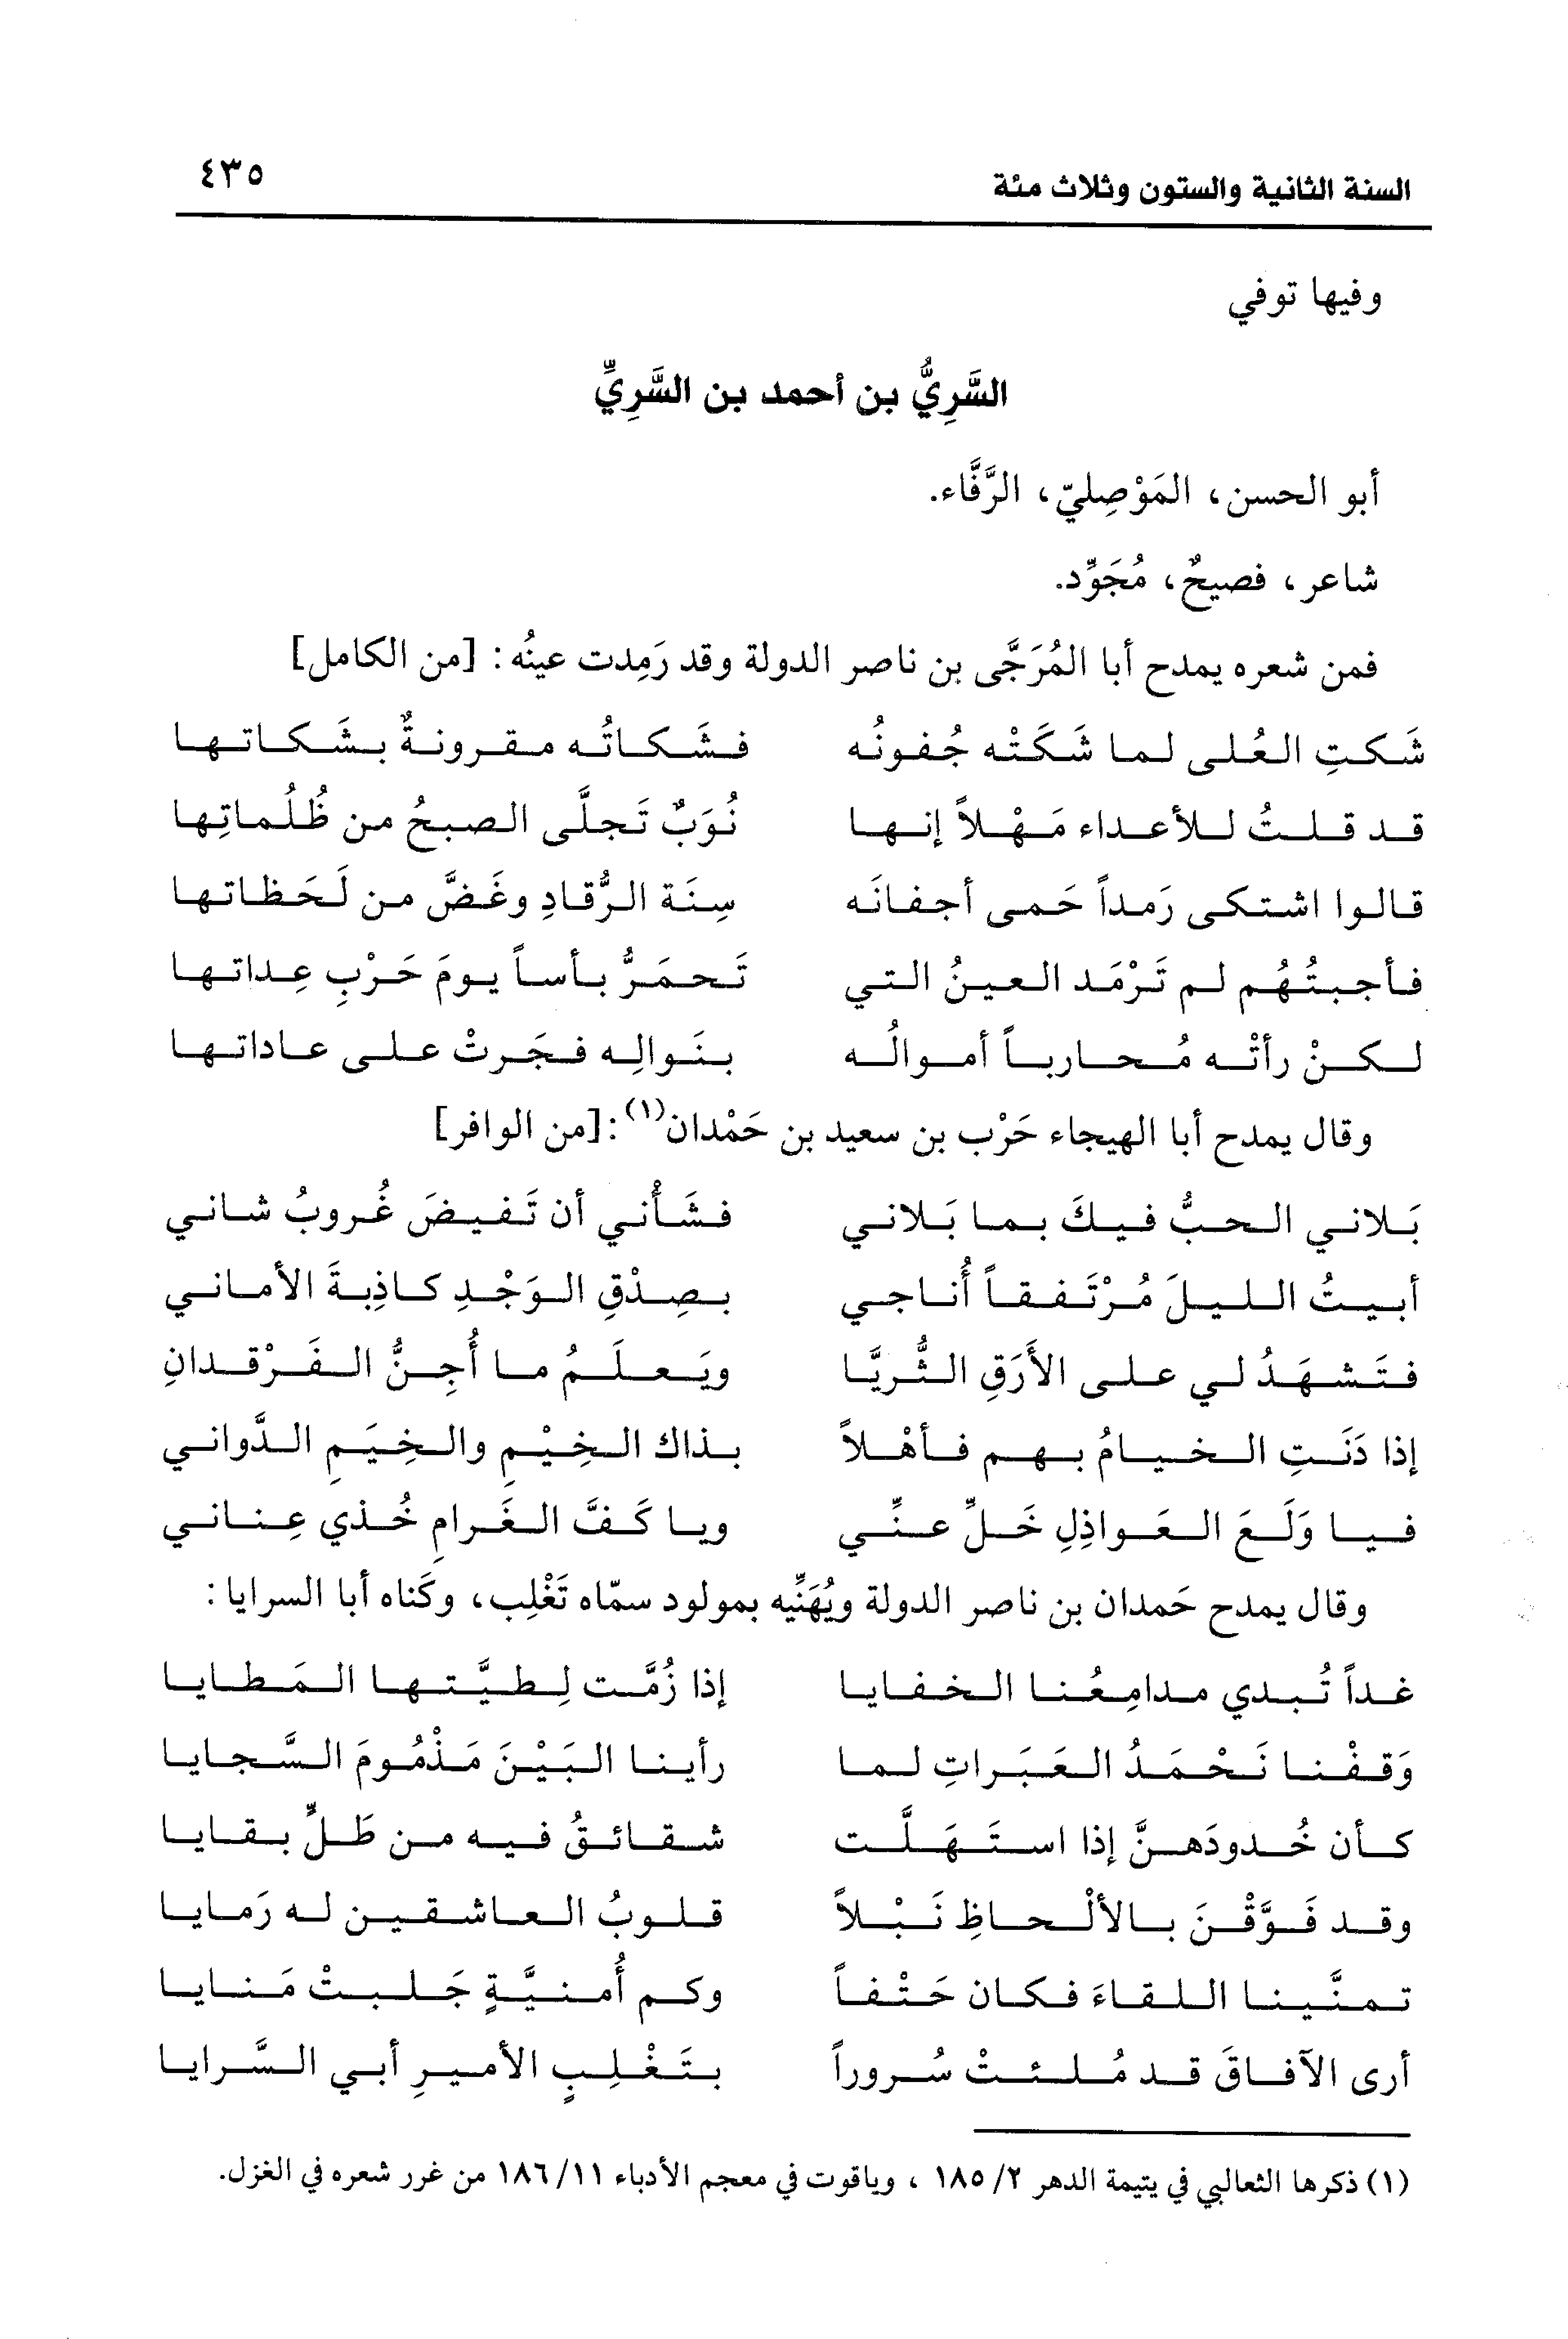 السنة الثانية والستون وثلاث مئة ٤٣٥
وفيها توفي
السَّرِيُّ بن أحمد بن السَّرِيِّ
أبو الحسن، المَوْصِليّ، الرَّفَّاء.
شاعر، فصيحٌ، مُجَوِّد.
فمن شعره يمدح أبا المُرَجَّى بن ناصر الدولة وقد رَمِدت عينُه: [من الكامل]
شَكتِ العُلى لما شَكَتْه جُفونُه فشَكاتُه مقرونةٌ بشَكاتها
قد قلتُ للأعداء مَهْلاً إنها نُوَبٌ تَجلَّى الصبحُ من ظُلُماتِها
قالوا اشتكى رَمداً حَمى أجفانَه سِنَة الرُّقادِ وغَضَّ من لَحَظاتها
فأجبتُهُم لم تَرْمَد العينُ التي تَحمَرُّ بأساً يومَ حَرْبِ عِداتها
لكنْ رأتْه مُحارباً أموالُه بنَوالِه فجَرتْ على عاداتها
وقال يمدح أبا الهيجاء حَرْب بن سعيد بن حَمْدان(١): [من الوافر]
بَلاني الحبُّ فيكَ بما بَلاني فشَأْني أن تَفيضَ غُروبُ شاني
أبيتُ الليلَ مُرْتَفقاً أُناجي بصِدْقِ الوَجْدِ كاذِبةَ الأماني
فتَشهَدُ لي على الأَرَقِ الثُّريَّا ويَعلَمُ ما أُجِنُّ الفَرْقدانِ
إذا دَنَتِ الخيامُ بهم فأهْلاً بذاك الخِيْمِ والخِيَمِ الدَّواني
فيا وَلَعَ العَواذِلِ خَلِّ عنِّي ويا كَفَّ الغَرامِ خُذي عِناني
وقال يمدح حَمدان بن ناصر الدولة ويُهَنِّيه بمولود سمّاه تَغْلِب، وكَناه أبا السرايا:
غداً تُبدي مدامِعُنا الخفايا إذا زُمَّت لِطيَّتها المَطايا
وَقفْنا نَحْمَدُ العَبَراتِ لما رأينا البَيْنَ مَذْمُومَ السَّجايا
كأن خُدودَهنَّ إذا استَهَلَّت شقائقُ فيه من طَلٍّ بقايا
وقد فَوَّقْنَ بالألْحاظِ نَبْلاً قلوبُ العاشقين له رَمايا
تمنَّينا اللقاءَ فكان حَتْفاً وكم أُمنيَّةٍ جَلبتْ مَنايا
أرى الآفاقَ قد مُلئتْ سُروراً بتَغْلِبٍ الأميرِ أبي السَّرايا
(١) ذكرها الثعالبي في يتيمة الدهر ٢/ ١٨٥ ، وياقوت في معجم الأدباء ١١/ ١٨٦ من غرر شعره في الغزل.